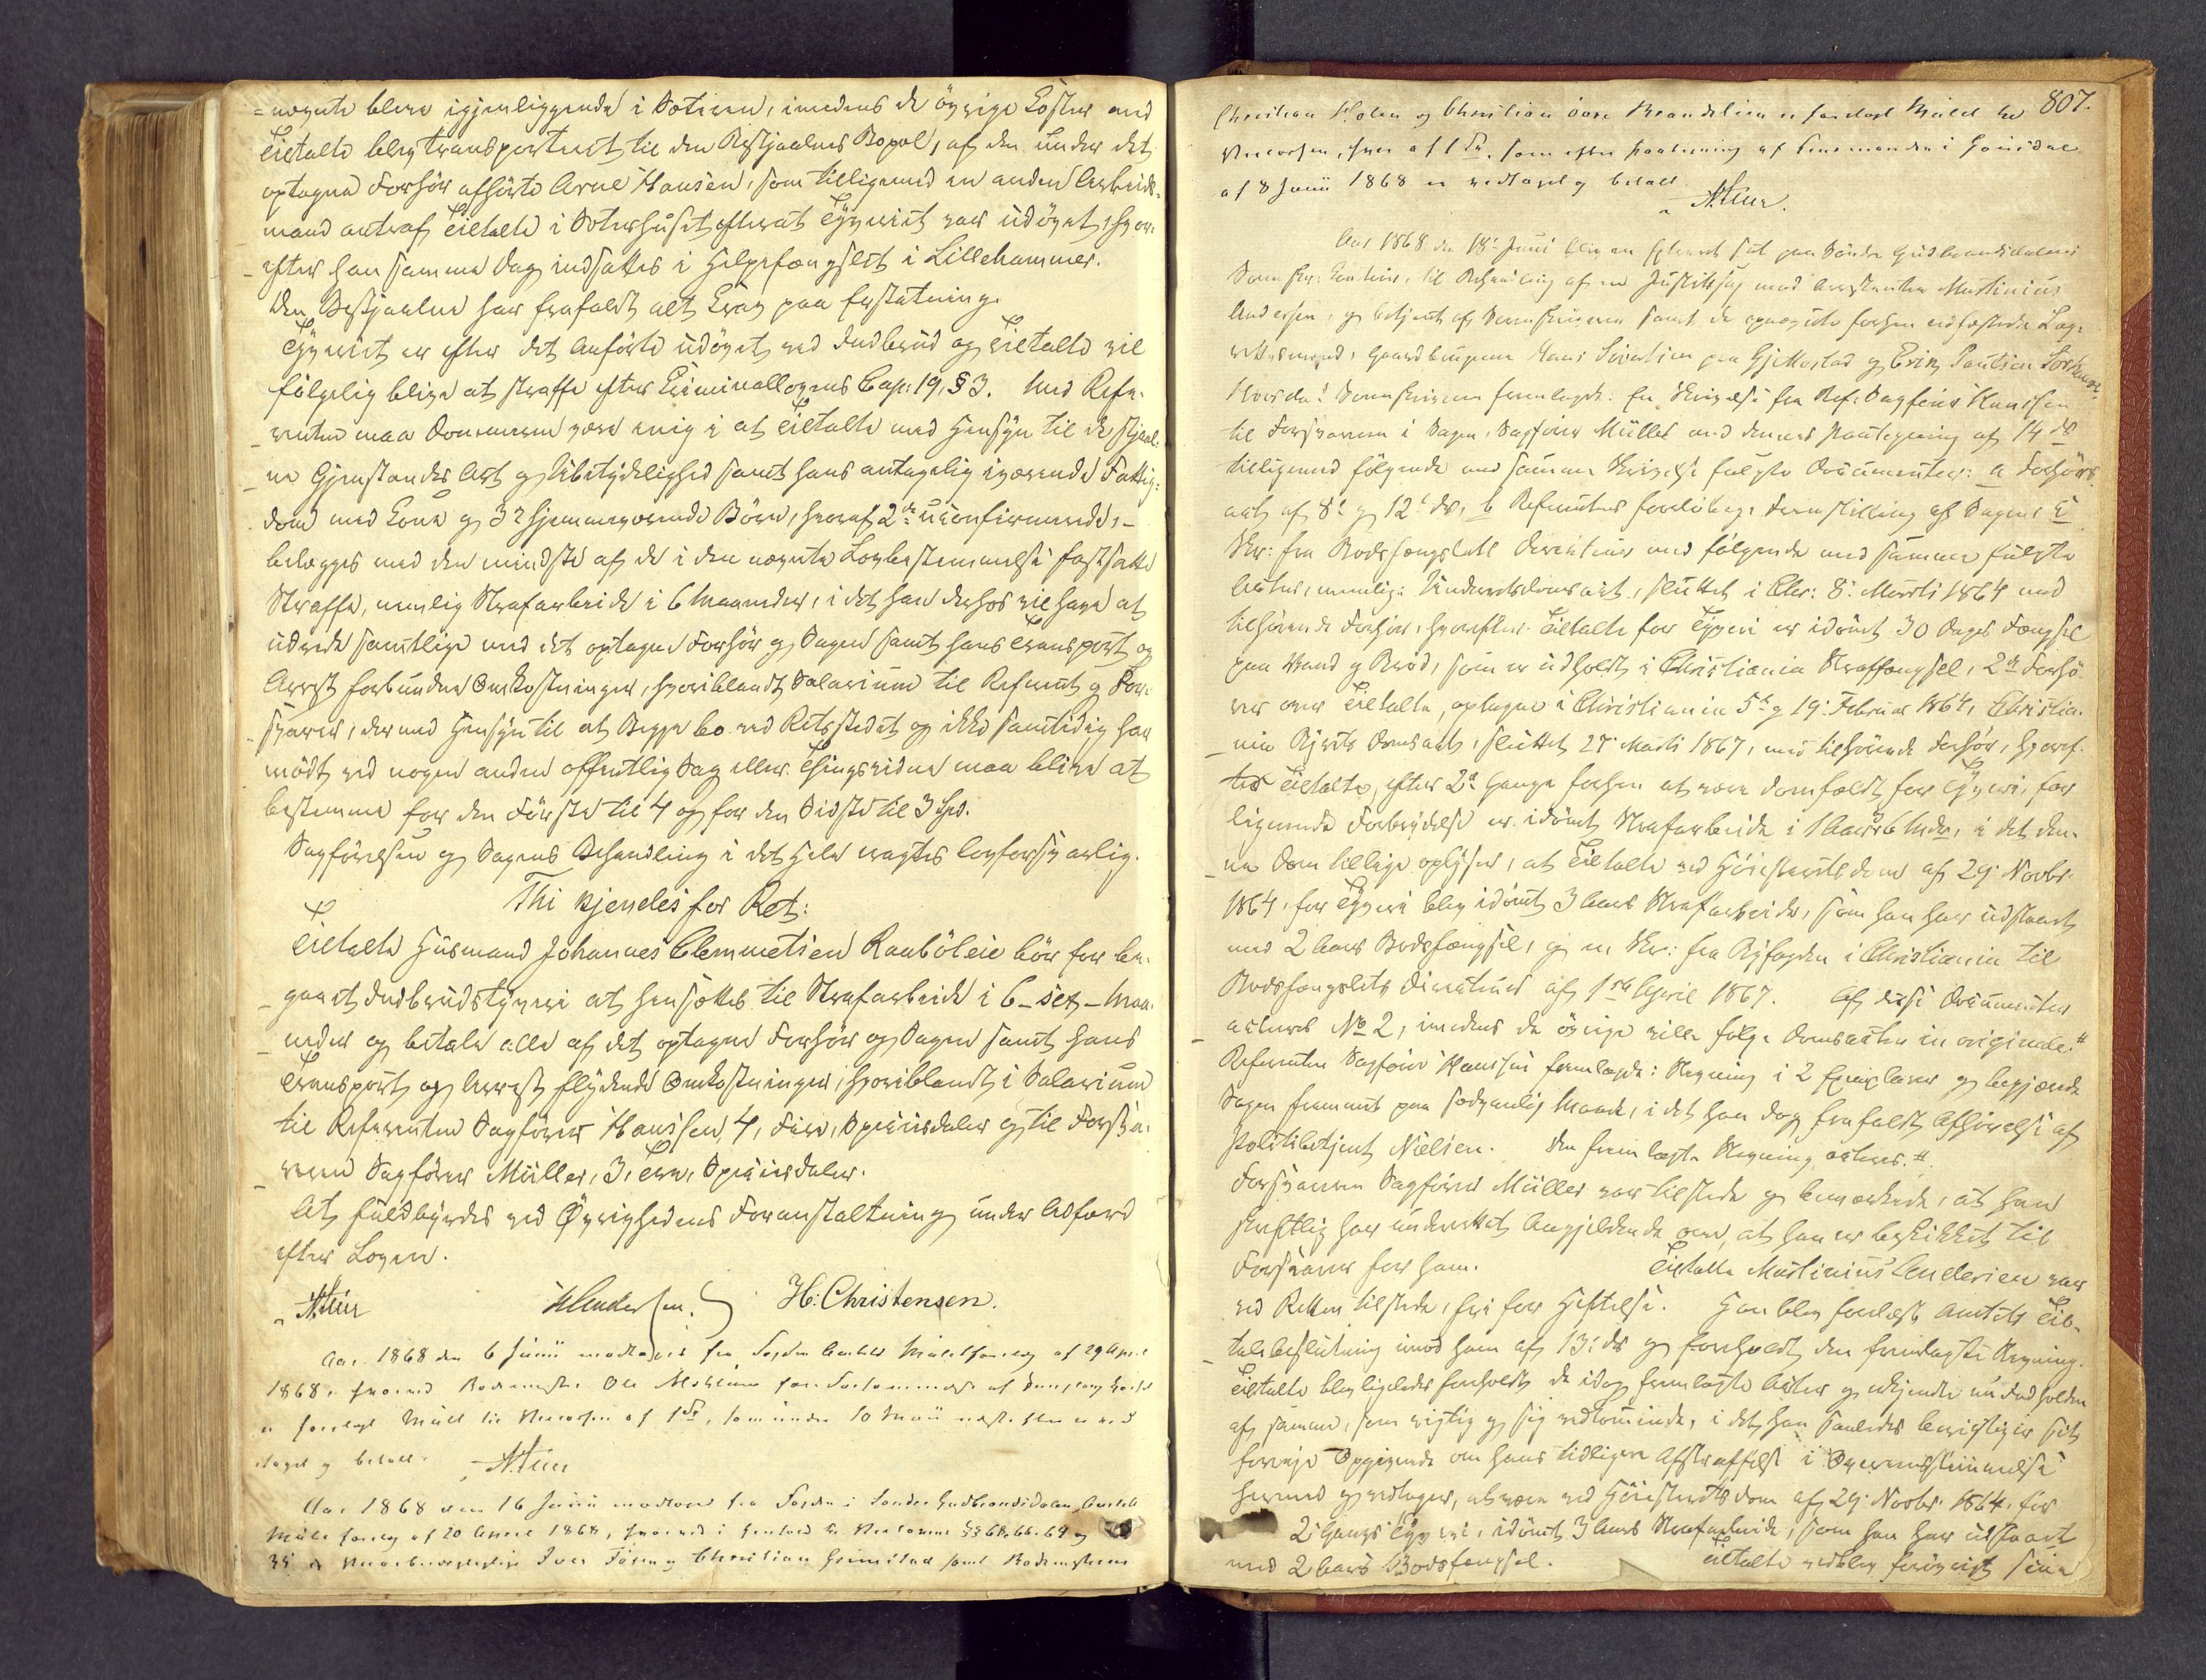 =nævnte bleve igjenliggende i Boderne, imedens de øvrige Koster med
Tiltalte blev transporteret til den Bestjaalnes Bopæl, af den under det
optagne Forhør afhørte Arne Hansen, som tilligemed en anden Arbeids-
mand antraf Tiltalte i huset efterat Tyveriet var udøvet, hvor-
efter han samme Dag indsattes i Hjelpefængslet i Lillehammer.
Den Bestjaalne har frafaldt alt Krav paa Erstatning.
Tyveriet er efter det Anførte udøvet ved Indbrud og Tiltalte vil
følgelig blive at straffe efter Criminallovens Cap: 19 § 3. Med Refe-
renten maa Domeren være enig i at Tiltalte med Hensyn til de stjaal-
ne Gjenstandes Art og Ubetydelighed samt hans antagelig værende Fattig-
dom med Kone og 3 hjemmeværende Børn, hvoraf 2de uconfirmerede, -
belægges med den mindste af de i den nævnte Lovbestemmelse fastsatte
Straffe, nemlig Strafarbeide i 6 Maaneder, i det han derhos vil have at
udrede samtlige med det optagne Forhør og Sagen samt hans Transport og
Arrest forbundne Omkostninger, hvoriblandt Salarium til Referent og For-
svarer, der med Hensyn til at Begge bo ved Retsstedet og ikke samtidig har
mødt ved nogen anden offentlig Sag eller Thingsvidne maa blive at
bestemme for den Første til 4 og for den Sidste til 3 Spd.
Sagførelsen og Sagens Behandling i det Hele vragtes lovforsvarlig.
Thi kjendes for Ret:
Tiltalte Husmand Johannes Clemmetsen Raabøleie bør for be-
gaaet Indbrudstyveri at hensættes til Strafarbeide i 6 - sex - Maa-
neder og betale alle af det optagne Forhør og Sagen samt hans
Transport og Arrest flydende Omkostninger, hvoriblandt i Salarium
til Referenten Sagfører Hanssen 4, fire, Speciesdaler og til Forsva-
reren Sagfører Müller, 3, tre, Speciesdaler.
At fuldbyrdes ved Øvrighedens Foranstaltning under Adfærd
efter Loven.
H: Christensen.
Aar 1868 den 6 Juni modtoges fra Fogden Amtets af 29 April
1868, hvorved Ole for af
er forelagt Mulct til af 1 Spd, som under 10 Mai er ved
taget og betalt.
Aar 1868 den 16 Juni modtoges fra Fogden i Søndre Gudbrandsdalen Amtets
af 20 April 1868, hvorved i Henhold til §§ 68. 66. 69 og
35 er Iver og Christian Grimstad samt
807.
Christian Holen og Christian Iversen er forelagt Mulct til
, hver af 1 Spd, som efter Paategning af Lensmanden i
af 8 Juni 1868 er vedtaget og betalt.
Aar 1868 den 18 Juni blev en Extraret sat paa Søndre Gudbrandsdalens
Sorenskr: Contoir, til Behandling af en Justitssag mod Arrestanten Martinius
Andersen, og betjent af Sorenskriveren samt de opnævnte forhen edfæstede Lag-
rettesmænd, Gaardbrugerne Hans Sivertsen paa Gjettestad og Erik Paulsen
. Sorenskriveren fremlagde: En Skrivelse fra Ref: Sagfører Hanssen
til Forsvareren i Sagen, Sagfører Müller med dennes Paategning af 14 ds
tilligemed følgende med samme Skrivelse fulgte Documenter: a Forhørs-
act af 8 og 12 ds, b Referentens foreløbige Fremstilling af Sagen c
Skr: fra Bodsfængslets Direction med følgende med samme fulgte
Acter, nemlig: Underretsdomsact, sluttet i Chr: 8 Marts 1864 med
tilhørende Forhør, hvorefter Tiltalte for Tyveri er idømt 30 Dages Fængsel
paa Vand og Brød, som er udholdt i Christiania Straffængsel, 2de Forhø-
rer over Tiltalte, optagne i Christiania 5te og 19 Februar 1864, Christia-
nia Byrets Domsact, sluttet 27 Marts 1867, med tilhørende Forhør, hvoref-
ter Tiltalte, efter 2de Gange forhen at være domfældt for Tyveri, for
lignende Forbrydelse er idømt Strafarbeide i 1 Aar 6 Mdr, i det den-
ne Dom tillige oplyser, at Tiltalte ved Høiesteretsdom af 29 Novbr
1864, for Tyveri blev idømt 3 Aars Strafarbeide, som han har udstaaet
med 2 Aars Bodsfængsel, og en Skr: fra Byfogden i Christiania til
Bodsfængslets Direction af 1ste April 1867. Af disse Documenter
acteres No 2, imedens de øvrige ville følge Domsacten in originale. #
Referenten Sagfører Hanssen fremlagde: Regning i 2 Exemplarer og begjærede
Sagen fremmet paa sædvanlig Maade, i det han dog frafaldt Afhørelse af
Politibetjent Nielsen. Den fremlagte Regning acteres. #
Forsvareren Sagfører Müller var tilstede og bemærkede, at han
skriftlig har underrettet Angjeldende om, at han er beskikket til
Forsvarer for ham. Tiltalte Martinius Andersen var
ved Retten tilstede, fri for Heftelse. Han blev forelæst Amtets Til-
talebeslutning imod ham af 13 ds og foreholdt den fremlagte Regning.
Tiltalte blev ligeledes foreholdt de idag fremlagte Acter og erkjendte Indholden
af samme, som rigtig og sig vedkommende, i det han saaledes berigtiger sit
forrige Opgivende om hans tidligere Afstraffelse i Overensstemmelse
hermed og vedtager, at være ved Høiesteretsdom af 29 Novbr. 1864, for
2 Gangs Tyveri, idømt 3 Aars Strafarbeide, som han har udstaaet
med 2 Aars Bodsfængsel. Tiltalte vedblev forøvrigt sine